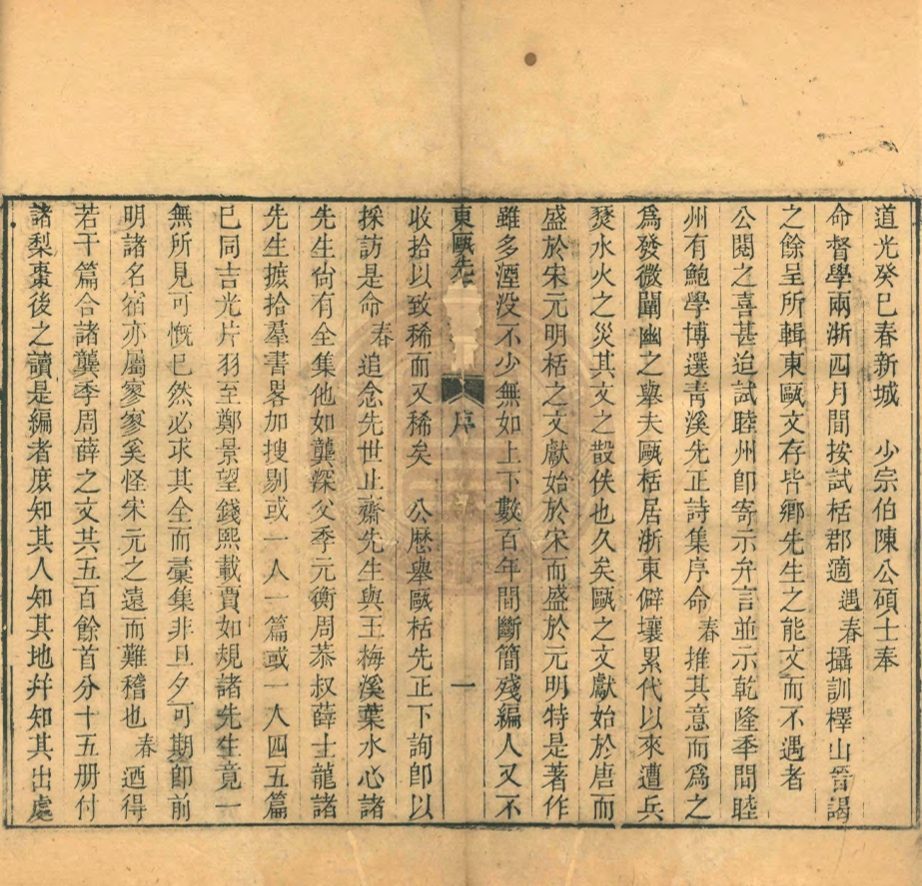 道光癸巳春新城　少宗伯陳公碩士奉
命督學兩浙四月間按試栝郡適　遇春攝訓檡山晉謁
之餘呈所輯東甌文存皆鄉先生之能文而不遇者
公閱之喜甚迨試睦州卽寄示弁言並示乾隆季間睦
州有鮑學博選青溪先正詩集序命　春推其意而爲之
爲發微闡幽之舉夫甌栝居浙東僻壤累代以來遭兵
燹水火之災其文之散佚也久矣甌之文獻始於唐而
盛於宋元明栝之文獻始於宋而盛於元明特是著作
雖多湮没不少無如上下數百年間斷簡殘編人又不
東甌先　序　一
收拾以致稀而又稀矣　公歷舉甌栝先正下詢卽以
採訪是命　春追念先世止齋先生與王梅溪葉水心諸
先生尙有全集他如龔深父季元衡周恭叔薛士龍諸
先生摭拾羣書畧加搜剔或一人一篇或一人四五篇
已同吉光片羽至鄭景望錢熙載賈如規諸先生竟一
無所見可慨已然必求其全而彙集非旦夕可期卽前
明諸名宿亦屬寥寥奚怪宋元之遠而難稽也　春迺得
若干篇合諸龔季周薛之文共五百餘首分十五册付
諸梨棗後之讀是編者庶知其人知其地幷知其出處